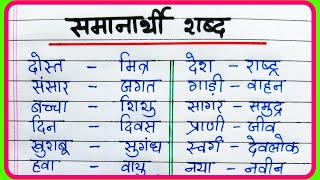 समानार्थी शब्द
दोस्त – मित्र
संसार – जगत
बच्चा – शिशु
दिन – दिवस
खुशबू – सुगंध
हवा – वायु
देश – राष्ट्र
गाड़ी – वाहन
सागर – समुद्र
प्राणी – जीव
स्वर्ग – देवलोक
नया – नवीन